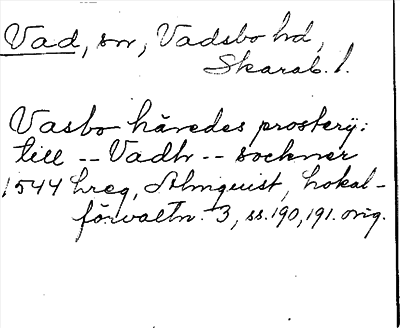 Vad, sn, Vadsbo hd,
Skarab. l.
Vasbo häredes prostery:
till -- Vadh -- sockner
1544 hreg, Almquist, Lokal-
förvaltn. 3, ss. 190, 191. orig.